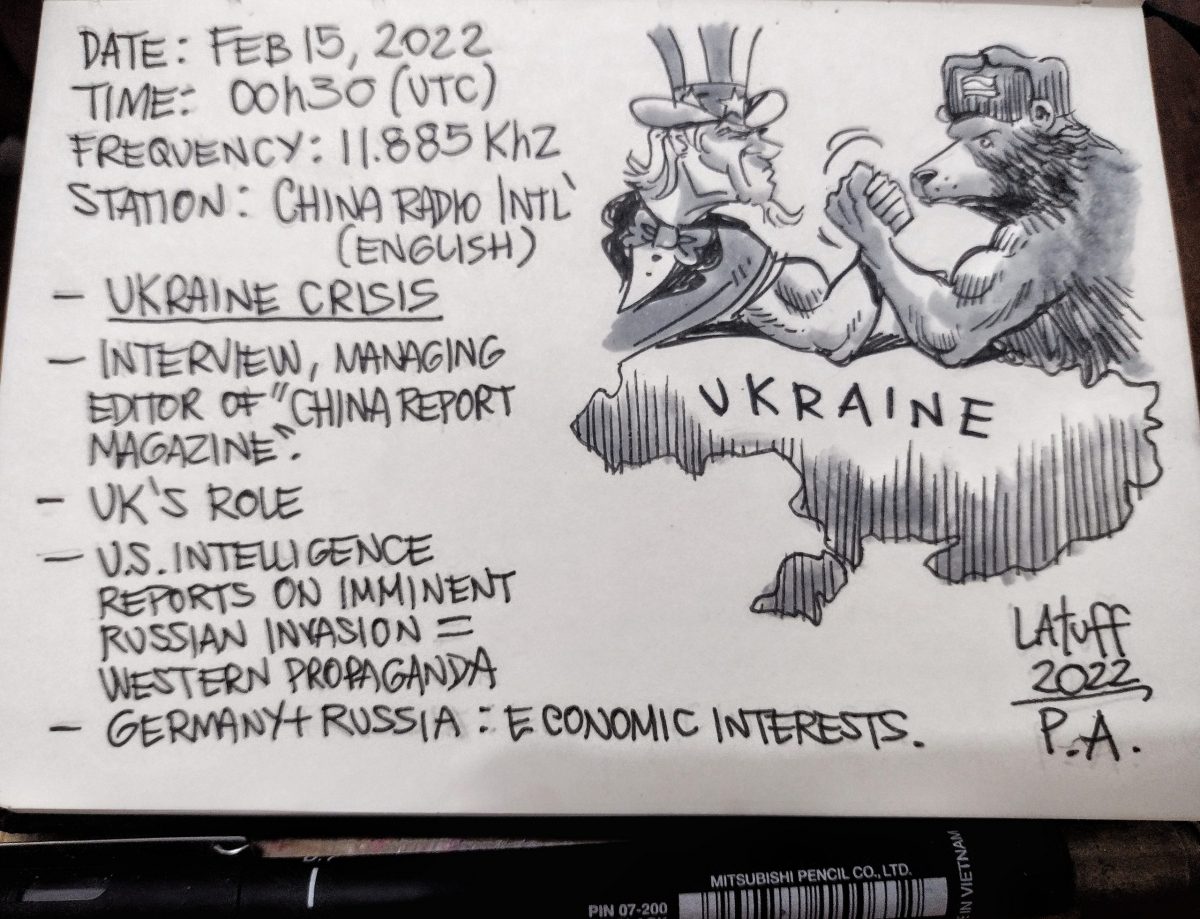 DATE: FEB 15, 2022
TIME: 00h30 (UTC)
FREQUENCY: 11.885 KhZ
STATION: CHINA RADIO INTL'
(ENGLISH)
- UKRAINE CRISIS
- INTERVIEW, MANAGING
EDITOR OF "CHINA REPORT
MAGAZINE".
- UK'S ROLE
- U.S. INTELLIGENCE
REPORTS ON IMMINENT
RUSSIAN INVASION =
WESTERN PROPAGANDA
- GERMANY + RUSSIA : ECONOMIC INTERESTS.
UKRAINE
LATUFF
2022
P.A.
MITSUBISHI PENCIL CO., LTD.
PIN 07-200
IN VIETNAM